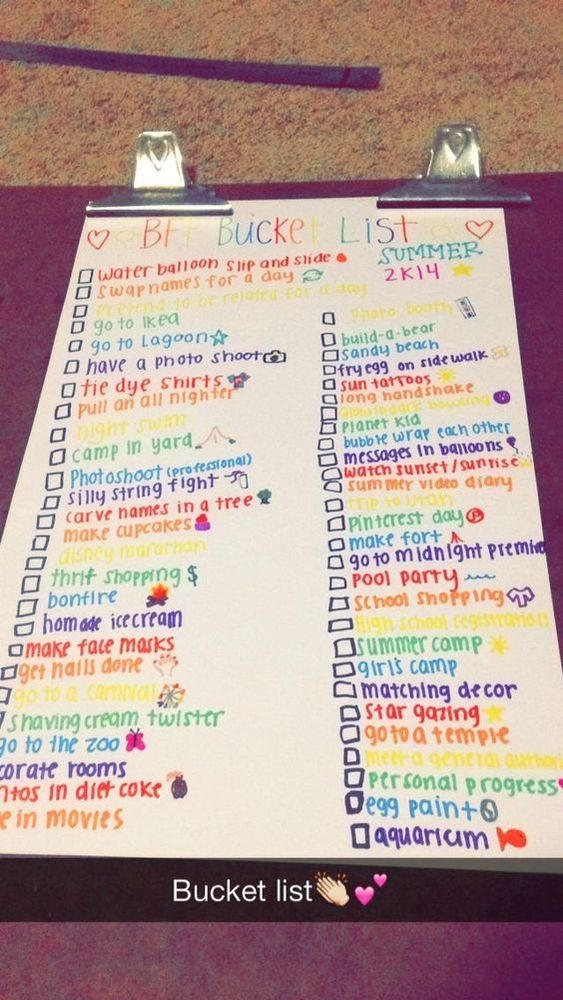 BFF Bucket List
SUMMER
2K14
water balloon slip and slide
swap names for a day
Pretend to be related for a day
go to Ikea
go to Lagoon
have a photo shoot
tie dye shirts
pull an all nighter
night swim
camp in yard
Photoshoot (professional)
silly string fight
carve names in a tree
make cupcakes
disney marathon
thrift shopping $
bonfire
homade icecream
make face masks
get nails done
go to a carnival
Shaving cream twister
go to the zoo
corate rooms
ntos in diet coke
e in movies
Photo booth
build-a-bear
sandy beach
fry egg on sidewalk
sun tattoos
long handshake
glow in dark bowling
Planet Kid
bubble wrap each other
messages in balloons
watch sunset/sunrise
summer video diary
trip to Utah
pinterest day
make fort
go to midnight premie
pool party
school shopping
High school registration
summer camp
girls camp
matching decor
star gazing
go to a temple
meet a general authori
personal progress
egg paint
aquarium
Bucket list👏💕